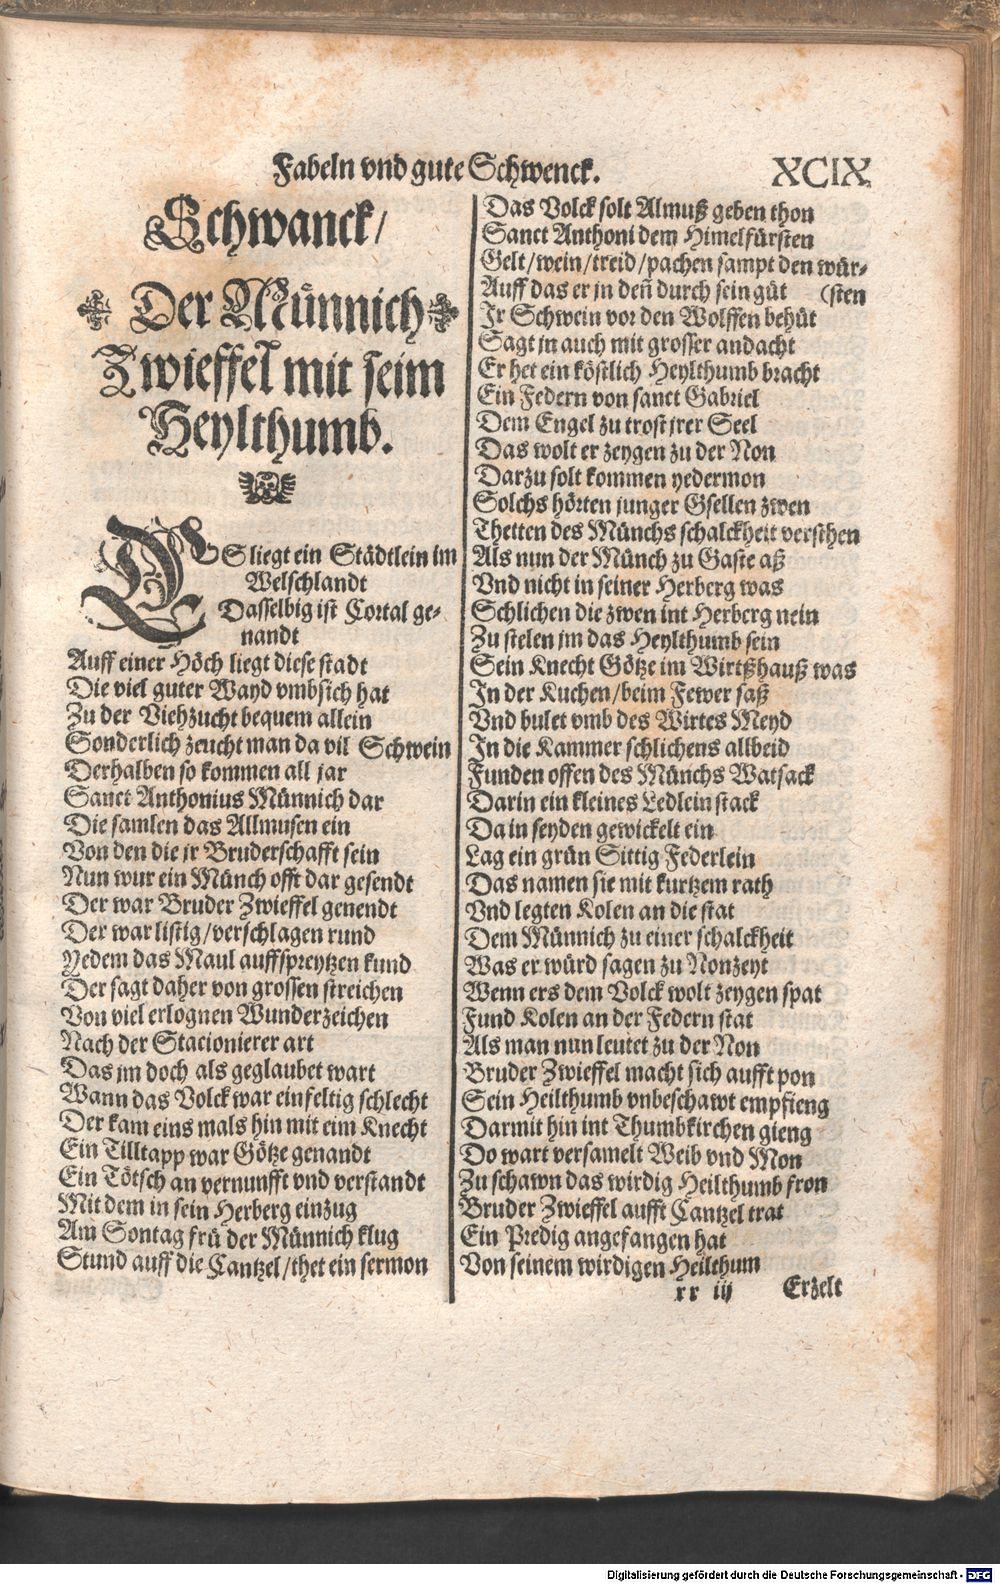 Fabeln vnd gute Schwenck. XCIX
Schwanck/
Der Münnich
Zwieffel mit seim
Heylthumb.
ES liegt ein Städtlein im
Welschlandt
Dasselbig ist Cortal ge-
nandt
Auff einer Höch liegt diese stadt
Die viel guter Wayd vmbsich hat
Zu der Viehzucht bequem allein
Sonderlich zeucht man da vil Schwein
Derhalben so kommen all jar
Sanct Anthonius Münnich dar
Die samlen das Allmusen ein
Von den die jr Bruderschafft sein
Nun wur ein Münch offt dar gesendt
Der war Bruder Zwieffel genendt
Der war listig/verschlagen rund
Yedem das Maul auffspreytzen kund
Der sagt daher von grossen streichen
Von viel erlognen Wunderzeichen
Nach der Stacionierer art
Das jm doch als geglaubet wart
Wann das Volck war einfeltig schlecht
Der kam eins mals hin mit eim Knecht
Ein Tilltapp war Götze genandt
Ein Tötsch an vernunfft vnd verstandt
Mit dem in sein Herberg einzug
Am Sontag frü der Münnich klug
Stund auff die Cantzel/thet ein sermon
Das Volck solt Almuß geben thon
Sanct Anthoni dem Himelfürsten
Gelt/wein/treid/pachen sampt den wür-
Auff das er jn deñ durch sein güt (sten
Jr Schwein vor den Wolffen behüt
Sagt jn auch mit grosser andacht
Er het ein köstlich Heylthumb bracht
Ein Federn von sanct Gabriel
Dem Engel zu trost jrer Seel
Das wolt er zeygen zu der Non
Darzu solt kommen yedermon
Solchs hörten junger Gsellen zwen
Thetten des Münchs schalckheit verstehen
Als nun der Münch zu Gaste aß
Vnd nicht in seiner Herberg was
Schlichen die zwen int Herberg nein
Zu stelen jm das Heylthumb sein
Sein Knecht Götze im Wirtßhauß was
In der Kuchen/beim Fewer saß
Vnd bulet vmb des Wirtes Meyd
In die Kammer schlichens allbeid
Funden offen des Münchs Watsack
Darin ein kleines Ledlein stack
Da in seyden gewickelt ein
Lag ein grün Sittig Federlein
Das namen sie mit kurtzem rath
Vnd legten Kolen an die stat
Dem Münnich zu einer schalckheit
Was er würd sagen zu Nonzeyt
Wenn ers dem Volck wolt zeygen spat
Fund Kolen an der Federn stat
Als man nun leutet zu der Non
Bruder Zwieffel macht sich aufft pon
Sein Heilthumb vnbeschawt empfieng
Darmit hin int Thumbkirchen gieng
Do wart versamelt Weib vnd Mon
Zu schawn das wirdig Heilthumb fron
Bruder Zwieffel aufft Cantzel trat
Ein Predig angefangen hat
Von seinem wirdigen Heilthum
xx iij Erzelt
Digitalisierung gefördert durch die Deutsche Forschungsgemeinschaft - DFG